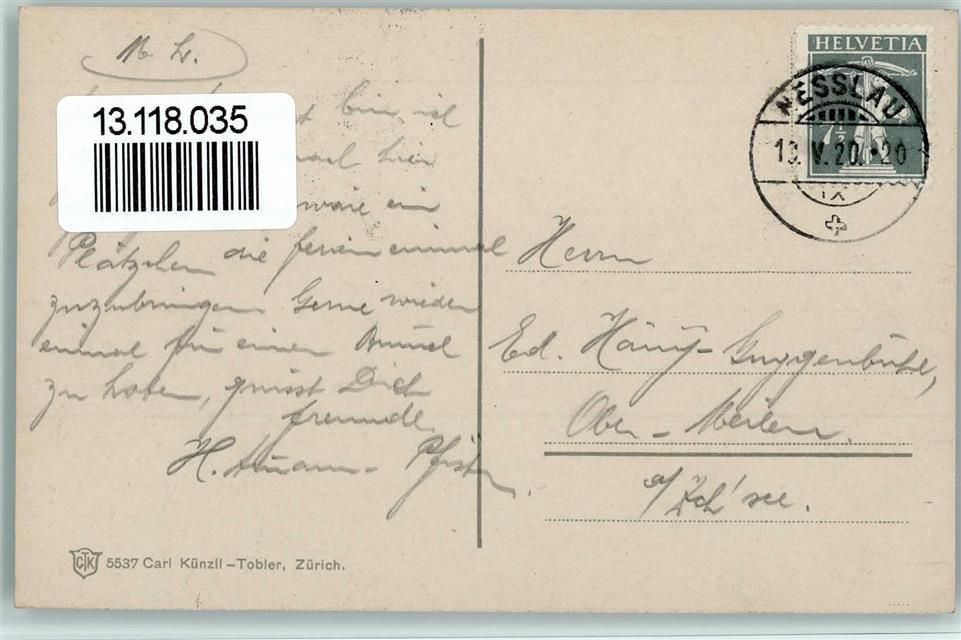 13.118.035
bin ich
hier
wäre ein
Plätzchen die ferien einmal
zuzubringen. Gerne wieder
einmal für einen
zu haben, grüsst Dich
freundl.
H. Amann - Pfister.
HELVETIA
7½
NESSLAU
13. V. 20. · 20
IX
Herrn
Ed. Guggenbühl,
Ober - Meilen.
a/Zch' see.
CTK 5537 Carl Künzli – Tobler, Zürich.